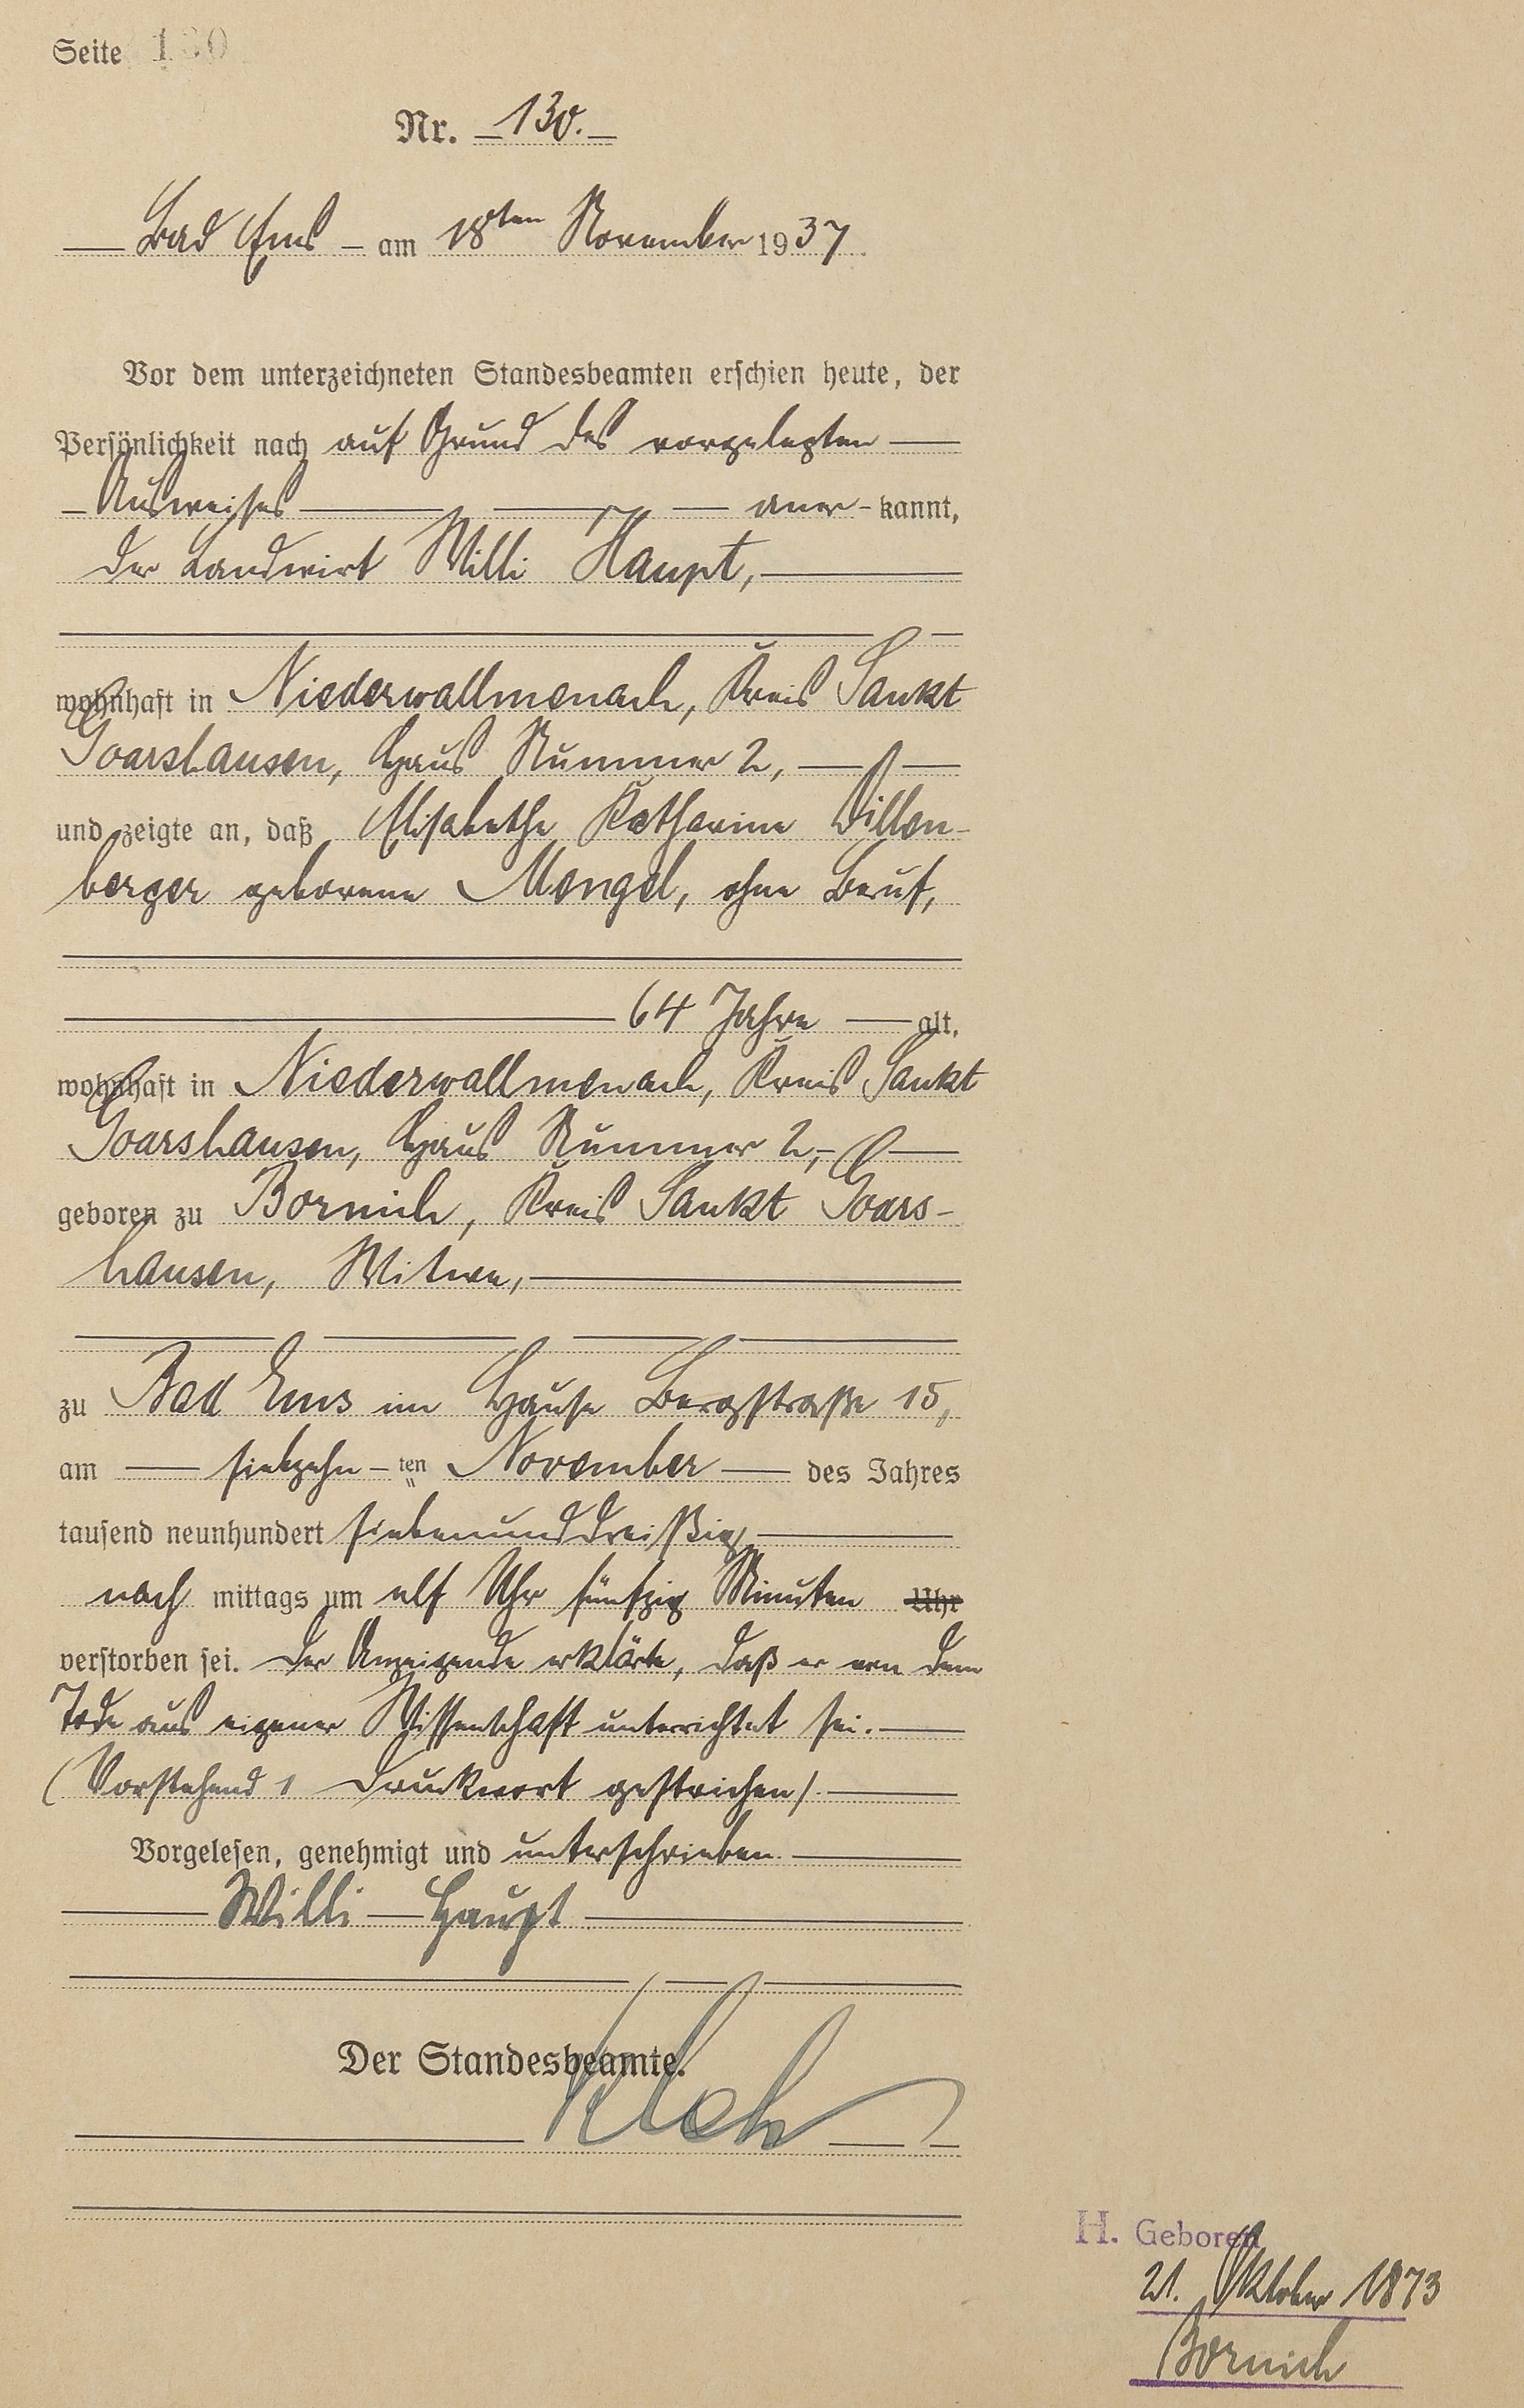 Seite 130
Nr. 130.
Bad Ems am 18ten November 1937
Vor dem unterzeichneten Standesbeamten erschien heute, der
Persönlichkeit nach auf Grund des vorgelegten
Ausweises aner-kannt,
der Landwirt Willi Haupt,
wohnhaft in Niederwallmenach, Kreis Sankt
Goarshausen, Haus Nummer 2,
und zeigte an, daß Elisabethe Katharine Dillen-
berger geborene Mengel, ohne Beruf,
64 Jahre alt,
wohnhaft in Niederwallmenach, Kreis Sankt
Goarshausen, Haus Nummer 2,
geboren zu Bornich, Kreis Sankt Goars-
hausen, Witwe,
zu Bad Ems im Hause Bergstraße 15,
am siebzehn-ten November des Jahres
tausend neunhundert siebenunddreißig
nach mittags um elf Uhr fünfzig Minuten Uhr
verstorben sei. Der Anzeigende erklärte, daß er von dem
Tode aus eigener Wissenschaft unterrichtet sei.
(Vorstehend 1 Druckwort gestrichen).
Vorgelesen, genehmigt und unterschrieben.
Willi Haupt
Der Standesbeamte.
H. Geboren
21. Oktober 1873
Bornich